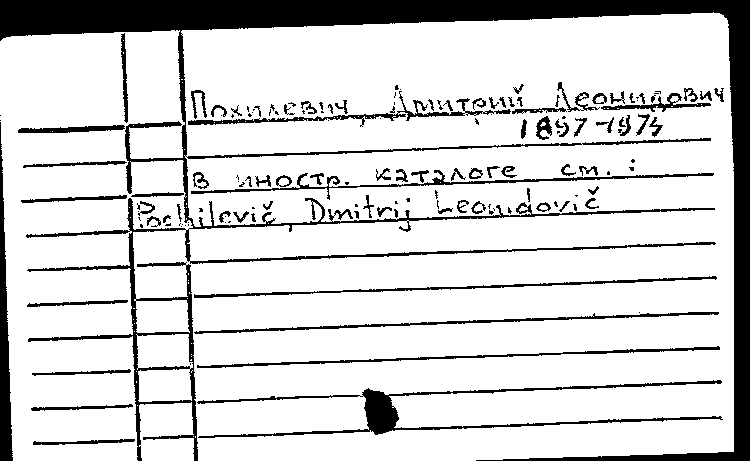 Похилевич, Дмитрий Леонидович
1897-1974
в иностр. каталоге см.:
Pochilevič, Dmitrij Leonidovič